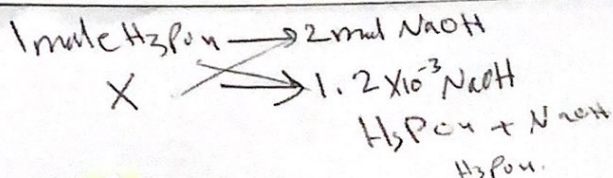 1 mole H3PO4 → 2 mol NaOH
X → 1.2 X10⁻³ NaOH
H3PO4 + NaOH
H3PO4.